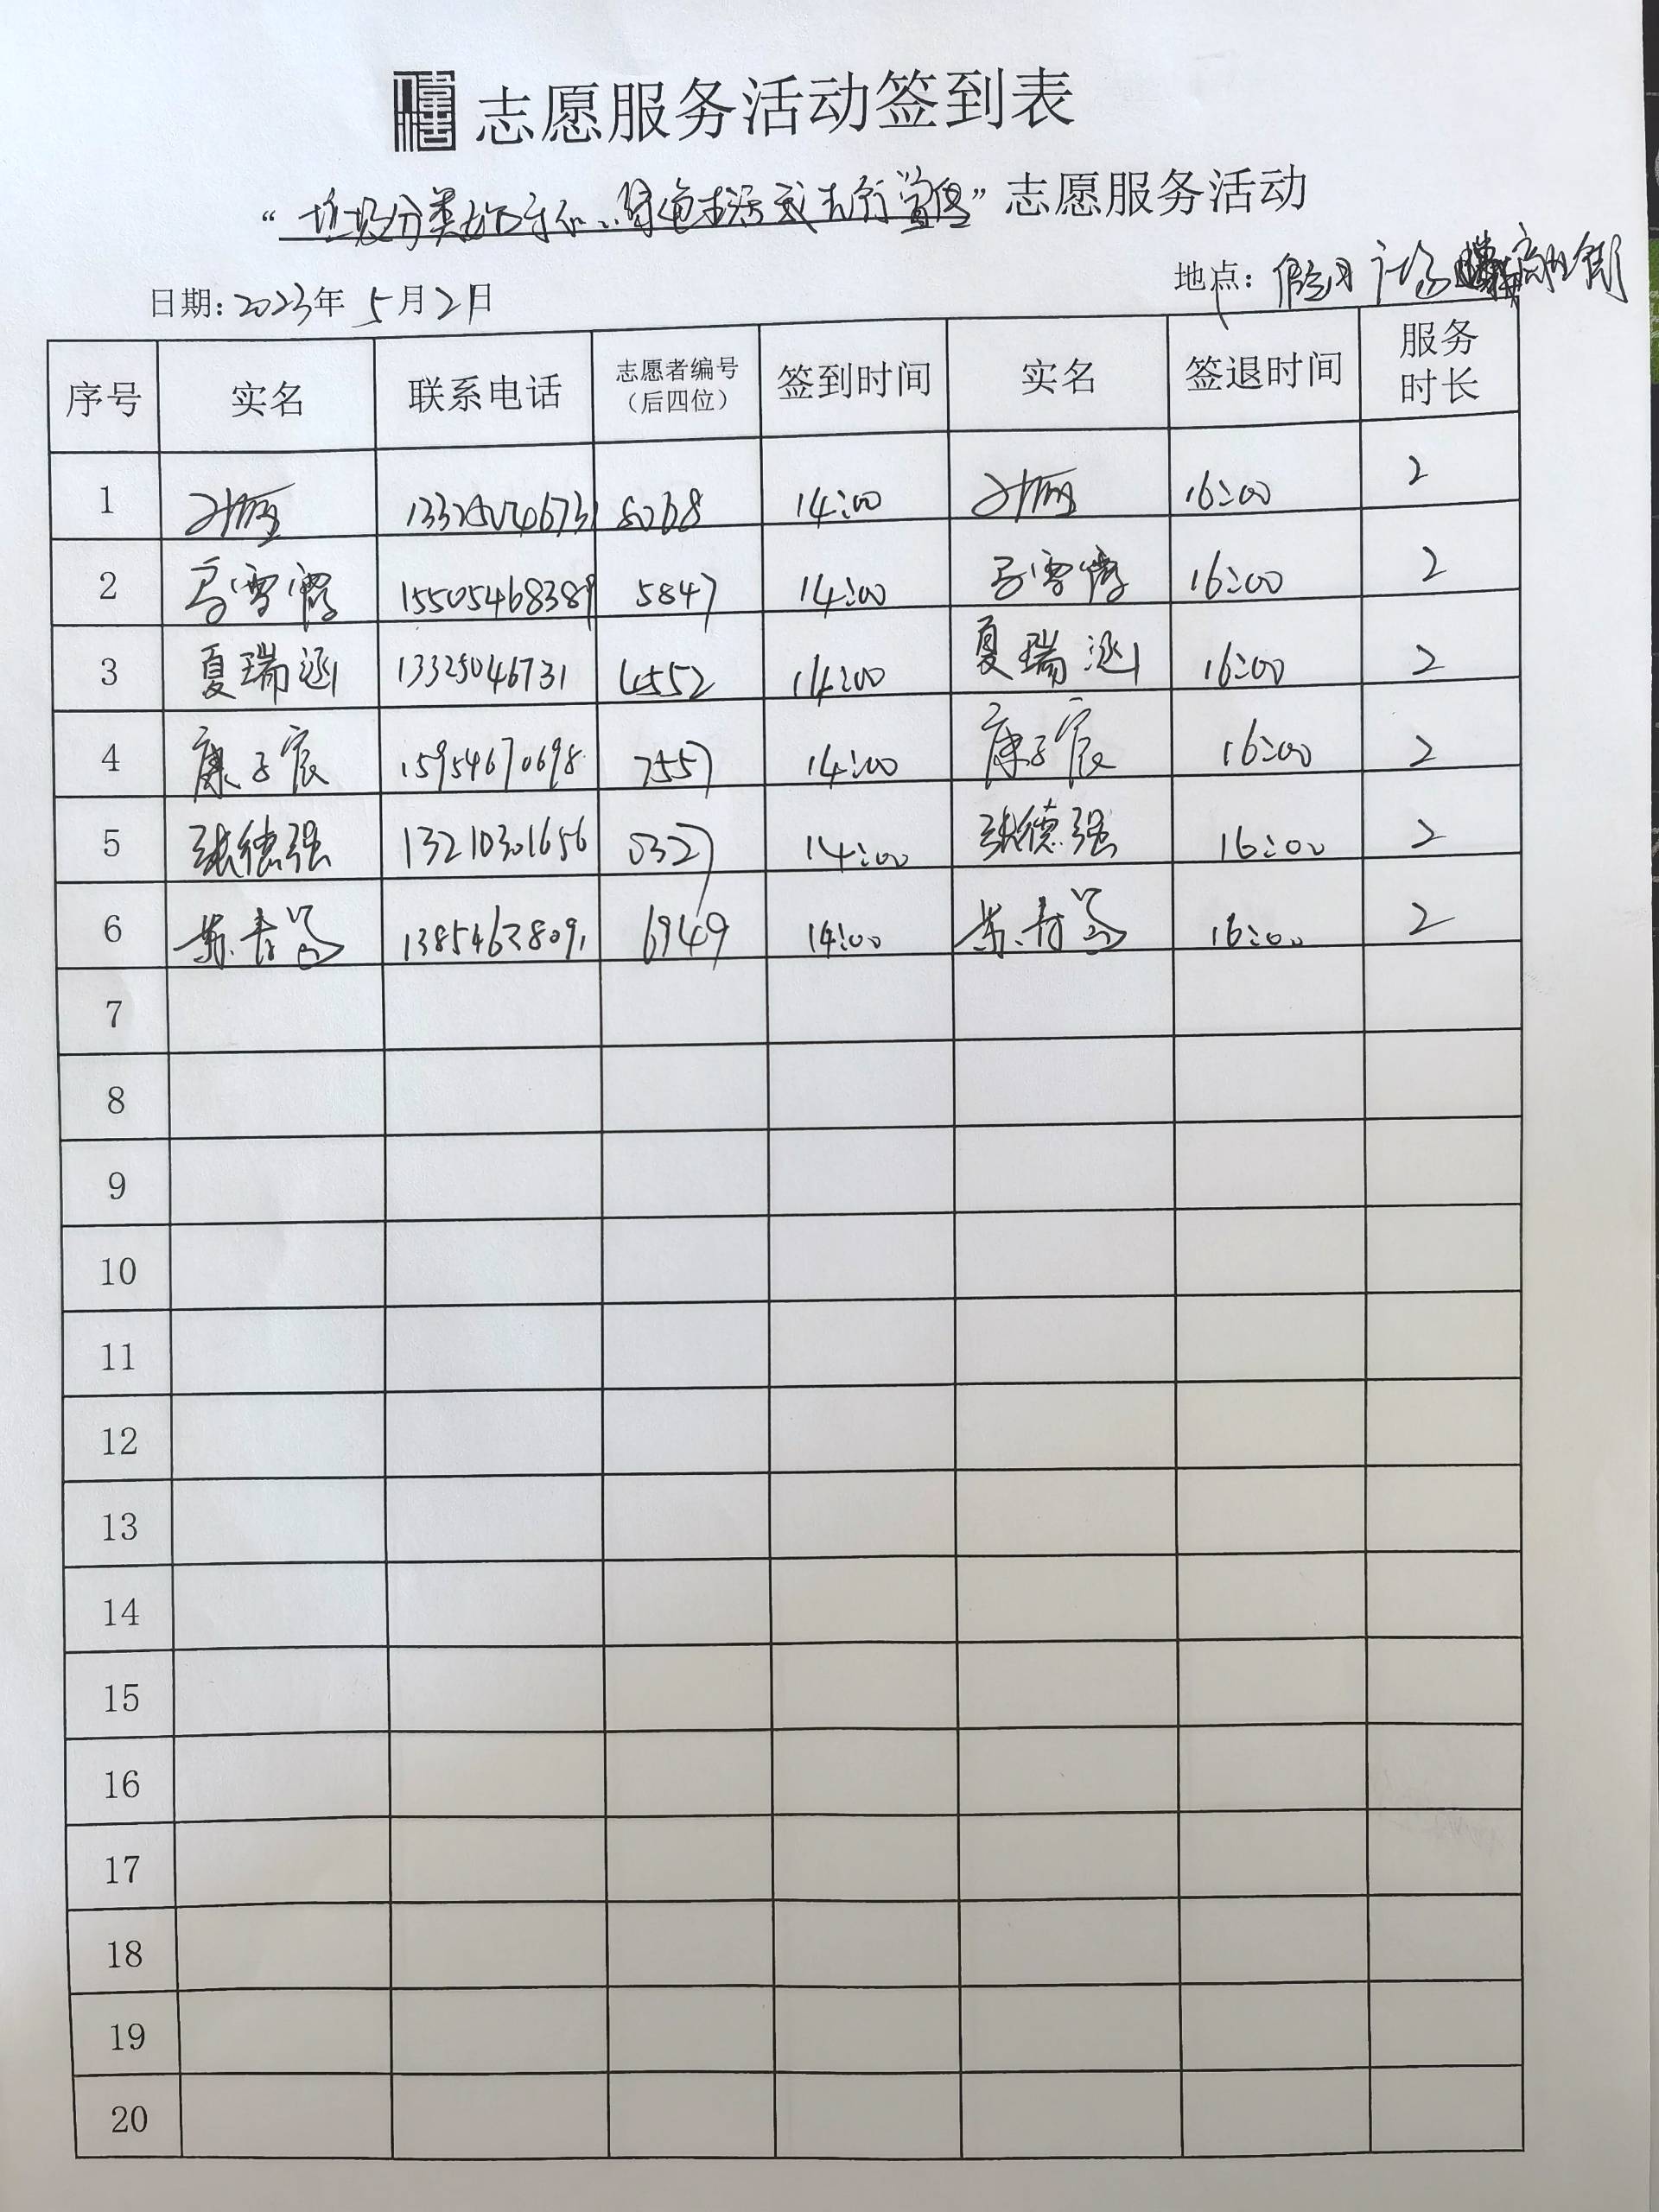 志愿服务活动签到表
“垃圾分类 绿色生活 行 宣传”志愿服务活动
日期：2023年5月21日 地点：假日广场 商业街
序号 实名 联系电话 志愿者编号（后四位） 签到时间 实名 签退时间 服务时长
1 8068 14:00 16:00 2
2 15505468389 5847 14:00 16:00 2
3 夏瑞涵 13325046731 4552 14:00 夏瑞涵 16:00 2
4 康子宸 15954670698 7557 14:00 康子宸 16:00 2
5 张德强 13210301656 0327 14:00 张德强 16:00 2
6 13854638091 6949 14:00 16:00 2
7
8
9
10
11
12
13
14
15
16
17
18
19
20